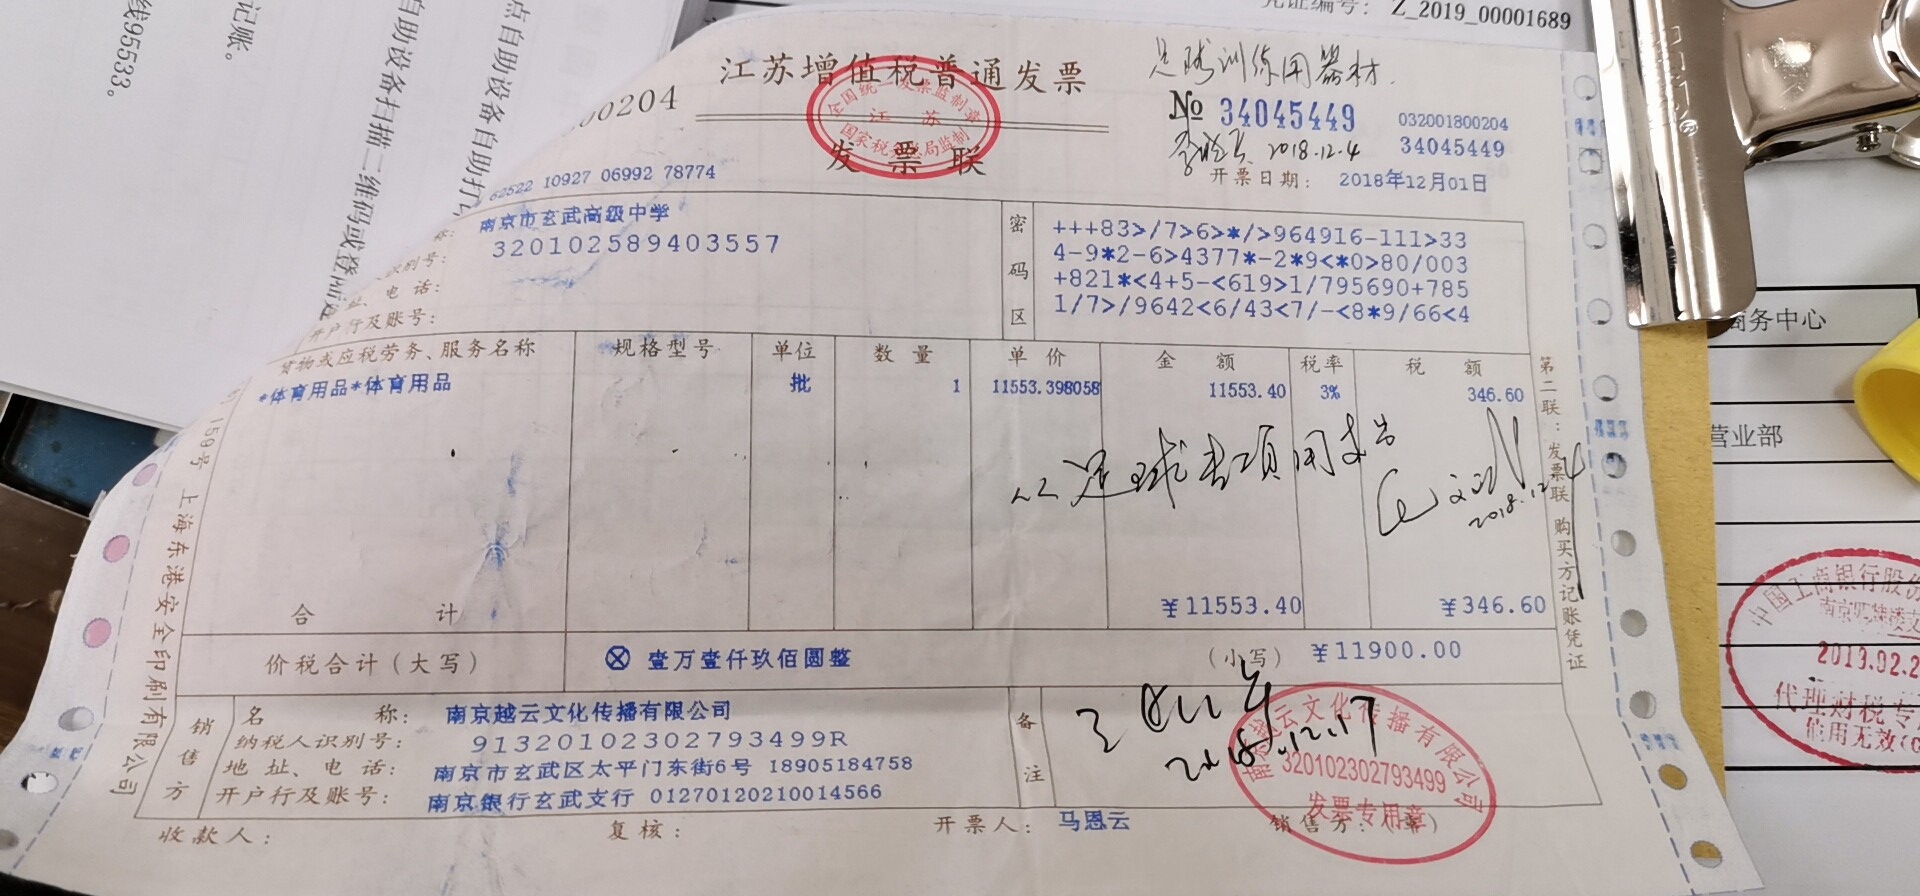 凭证编号: Z_2019_00001689
线95533。
记账。
点自助设备自助打
自助设备扫描二维码或登
江苏增值税普通发票
00204
全国统一发票监制章
江 苏
国家税务总局监制
发 票 联
足球训练用器材.
№ 34045449
032001800204
34045449
2018.12.4
开票日期: 2018年12月01日
62522 10927 06992 78774
称: 南京市玄武高级中学
识别号: 320102589403557
址、电话:
开户行及账号:
密码区
+++83>/7>6>*/>964916-111>33
4-9*2-6>4377*-2*9<*0>80/003
+821*<4+5-<619>1/795690+785
1/7>/9642<6/43<7/-<8*9/66<4
货物或应税劳务、服务名称 规格型号 单位 数 量 单 价 金 额 税率 税 额
*体育用品*体育用品 批 1 11553.398058 11553.40 3% 346.60
足球专项用支出
2018.12.4
合 计 ¥11553.40 ¥346.60
价税合计(大写) ⊗ 壹万壹仟玖佰圆整 (小写) ¥11900.00
销售方
名 称: 南京越云文化传播有限公司
纳税人识别号: 91320102302793499R
地 址、电 话: 南京市玄武区太平门东街6号 18905184758
开户行及账号: 南京银行玄武支行 01270120210014566
备注
2018.12.17
南京越云文化传播有限公司
320102302793499
发票专用章
收款人: 复核: 开票人: 马恩云 销售方:(章)
第二联:发票联 购买方记账凭证
159号 上海东港安全印刷有限公司
商务中心
营业部
中国工商银行股份
2019.02.2
代理财税专
信用无效